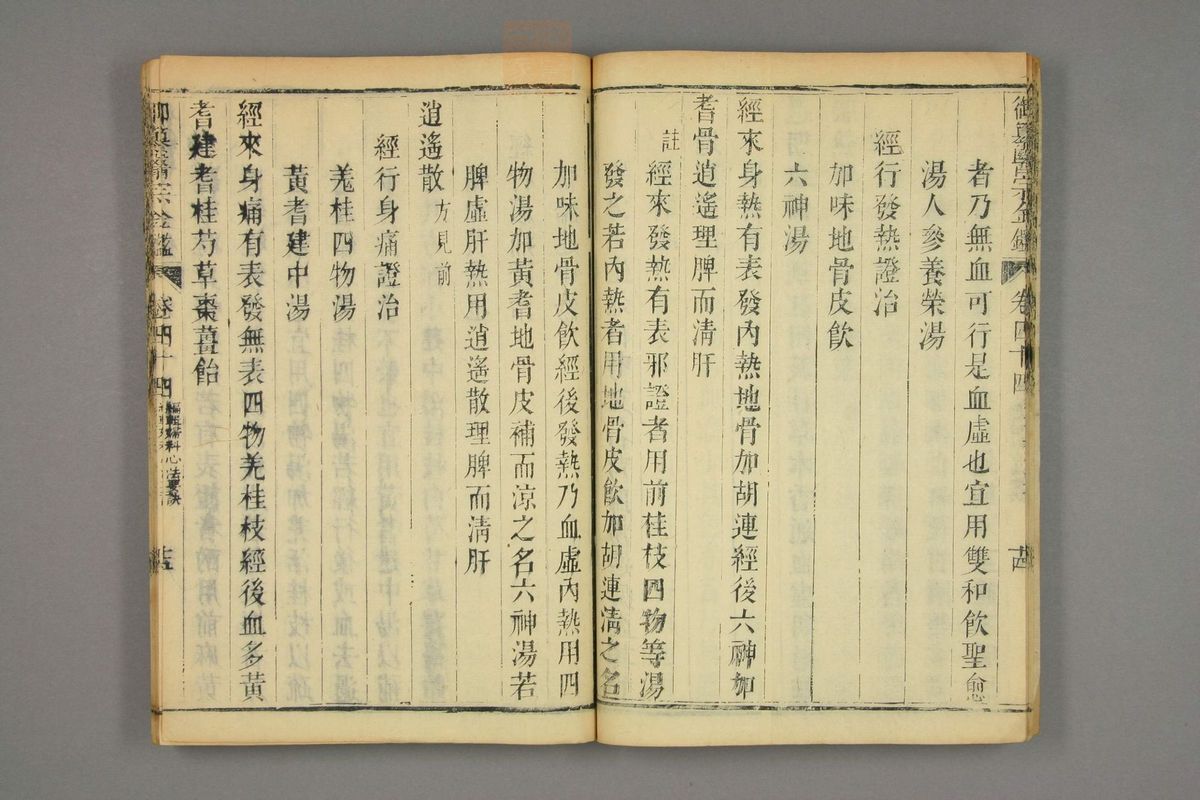 御纂醫宗金鑑 卷四十四 
者乃無血可行是血虛也宜用雙和飲聖愈
湯人參養榮湯
經行發熱證治
加味地骨皮飲
六神湯
經來身熱有表發內熱地骨加胡連經後六神加
耆骨逍遙理脾而清肝
註
經來發熱有表邪證者用前桂枝四物等湯
發之若內熱者用地骨皮飲加胡連清之名
加味地骨皮飲經後發熱乃血虛內熱用四
物湯加黃耆地骨皮補而涼之名六神湯若
脾虛肝熱用逍遙散理脾而清肝
逍遙散方見前
經行身痛證治
羗桂四物湯
黃耆建中湯
經來身痛有表發無表四物羗桂枝經後血多黃
耆建耆桂芍草棗薑飴
御纂醫宗金鑑 卷四十四 編輯婦科心法要訣